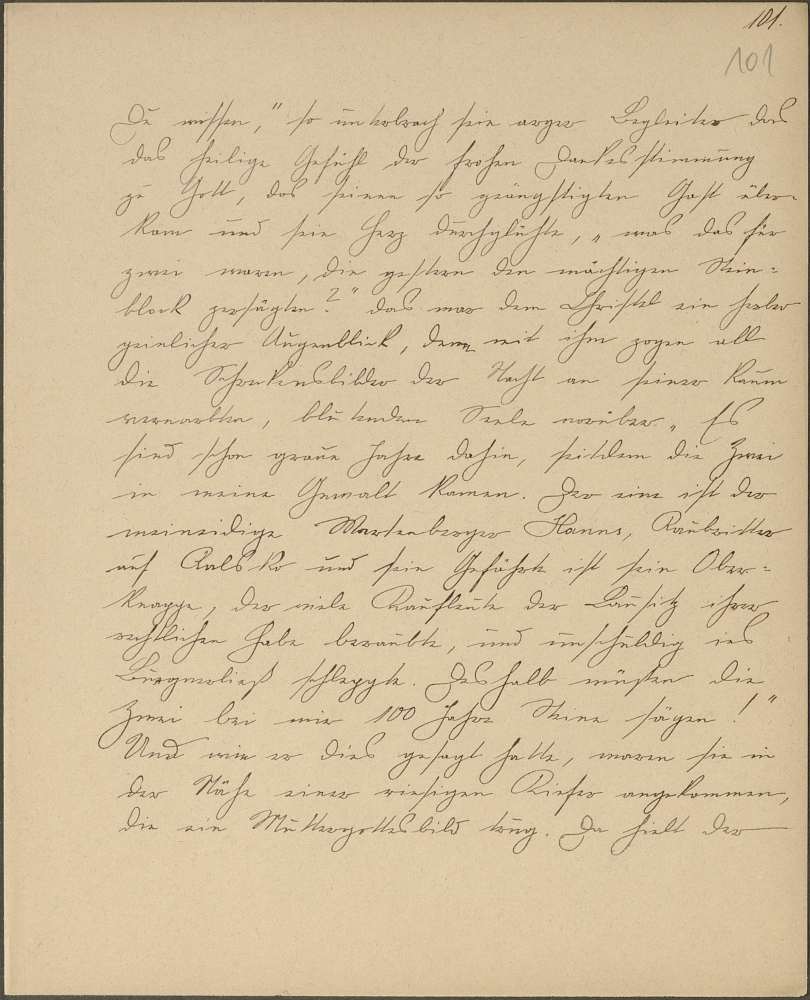 101.
101
Du wissen," so unterbrach sein arger Begleiter das
das heilige Gefühl der frohen Dankesstimmung
zu Gott, das seinen so geängstigten Gast über-
kam und sein Herz durchglühte, „was das für
zwei waren, die gestern den mächtigen Stein-
block zersägten?" das war dem Christel ein
peinlicher Augenblick, denn mit ihm zogen all
die Schreckensbilder der Nacht an seiner kaum
vernarbten, blutenden Seele vorüber. „Es
sind schon graue Jahre dahin, seitdem die Zwei
in meine Gewalt kamen. Der eine ist der
meineidige Wartenberger Hanns, Raubritter
auf Ralsko und sein Gefährte ist sein Ober-
knappe, der viele Kaufleute der Lausitz ihrer
rechtlichen Habe beraubte, und unschuldig ins
Burgverließ schleppte. Deshalb müssen die
Zwei bei mir 100 Jahre Steine sägen!"
Und wie er dies gesagt hatte, waren sie in
der Nähe einer riesigen Kiefer angekommen,
die ein Muttergottesbild trug. Da hielt der